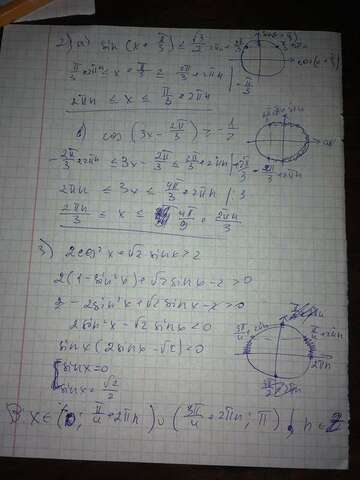 2) а) sin (x + π/3) ≤ √3/2
π/3 + 2πn ≤ x + π/3 ≤ 2π/3 + 2πn | - π/3
2πn ≤ x ≤ π/3 + 2πn
в) cos (3x - 2π/3) ≥ - 1/2
- 2π/3 + 2πn ≤ 3x - 2π/3 ≤ 2π/3 + 2πn | + 2π/3
2πn ≤ 3x ≤ 4π/3 + 2πn | : 3
2πn/3 ≤ x ≤ 4π/9 + 2πn/3
3)
2cos²x + √2 sinx > 2
2(1 - sin²x) + √2 sinx - 2 > 0
2 - 2sin²x + √2 sinx - 2 > 0
2sin²x - √2 sinx < 0
sinx (2sinx - √2) < 0
sinx = 0
sinx = √2/2
x ∈ (0; π/4 + 2πn) ∪ (3π/4 + 2πn; π), n ∈ Z